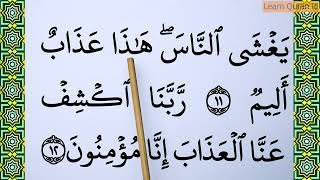 Learn Quran
يَغْشَى ٱلنَّاسَۖ هَـٰذَا عَذَابٌ
أَلِيمٌ ١١ رَّبَّنَا ٱكْشِفْ
عَنَّا ٱلْعَذَابَ إِنَّا مُؤْمِنُونَ ١٢